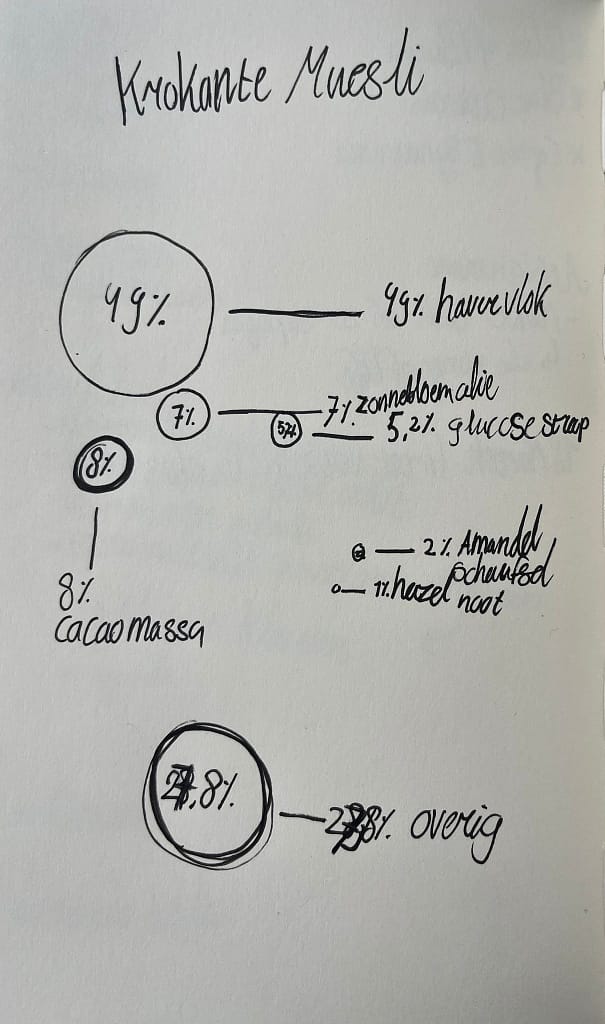 Krokante Muesli
49%
49% havervlok
7%
7% zonnebloemolie
5,2%
5,2% glucose stroop
8%
2% Amandel
1% hazel
noot
8%
cacaomassa
27,8%
overig